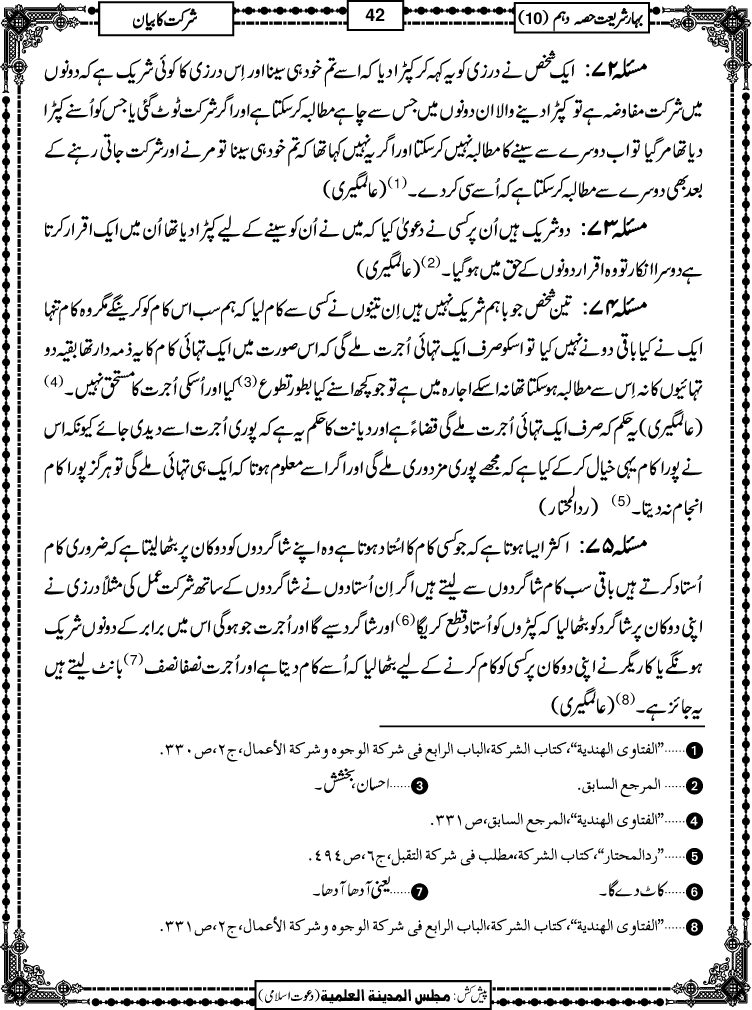 بہار شریعت حصہ دہم (10)
42
شرکت کا بیان
مسئلہ ۷۲: ایک شخص نے درزی کو یہ کہہ کر کپڑا دیا کہ اسے تم خود ہی سینا اور اِس درزی کا کوئی شریک ہے کہ دونوں
میں شرکت مفاوضہ ہے تو کپڑا دینے والا ان دونوں میں جس سے چاہے مطالبہ کرسکتا ہے اور اگر شرکت ٹوٹ گئی یا جس کو اُسنے کپڑا
دیا تھا مرگیا تو اب دوسرے سے سینے کا مطالبہ نہیں کرسکتا اور اگر یہ نہیں کہا تھا کہ تم خود ہی سینا تو مرنے اور شرکت جاتی رہنے کے
بعد بھی دوسرے سے مطالبہ کرسکتا ہے کہ اُسے سی کر دے۔(1) (عالمگیری)
مسئلہ ۷۳: دو شریک ہیں اُن پر کسی نے دعویٰ کیا کہ میں نے اُن کو سینے کے لیے کپڑا دیا تھا اُن میں ایک اقرار کرتا
ہے دوسرا انکار تو وہ اقرار دونوں کے حق میں ہوگیا۔(2) (عالمگیری)
مسئلہ ۷۴: تین شخص جو باہم شریک نہیں ہیں اِن تینوں نے کسی سے کام لیا کہ ہم سب اس کام کو کرینگے مگر وہ کام تنہا
ایک نے کیا باقی دو نے نہیں کیا تو اسکو صرف ایک تہائی اُجرت ملے گی کہ اس صورت میں ایک تہائی کام کا یہ ذمہ دار تھا بقیہ دو
تہائیوں کا نہ اِس سے مطالبہ ہوسکتا تھا نہ اسکے اجارہ میں ہے تو جو کچھ اسنے کیا بطور تطوع(3) کیا اور اُسکی اُجرت کا مستحق نہیں۔(4)
(عالمگیری) یہ حکم کہ صرف ایک تہائی اُجرت ملے گی قضاءً ہے اور دیانت کا حکم یہ ہے کہ پوری اُجرت اسے دیدی جائے کیونکہ اس
نے پورا کام یہی خیال کرکے کیا ہے کہ مجھے پوری مزدوری ملے گی اور اگر اسے معلوم ہوتا کہ ایک ہی تہائی ملے گی تو ہرگز پورا کام
انجام نہ دیتا۔(5) (ردالمحتار)
مسئلہ ۷۵: اکثر ایسا ہوتا ہے کہ جو کسی کام کا استاد ہوتا ہے وہ اپنے شاگردوں کو دوکان پر بٹھا لیتا ہے کہ ضروری کام
اُستاد کرتے ہیں باقی سب کام شاگردوں سے لیتے ہیں اگر اِن اُستادوں نے شاگردوں کے ساتھ شرکت عمل کی مثلاً درزی نے
اپنی دوکان پر شاگرد کو بٹھا لیا کہ کپڑوں کو اُستاد قطع کریگا(6) اور شاگرد سیے گا اور اُجرت جو ہوگی اس میں برابر کے دونوں شریک
ہونگے یا کاریگر نے اپنی دوکان پر کسی کو کام کرنے کے لیے بٹھا لیا کہ اُسے کام دیتا ہے اور اُجرت نصفا نصف(7) بانٹ لیتے ہیں
یہ جائز ہے۔(8) (عالمگیری)
1......"الفتاوی الهندية"،کتاب الشرکة،الباب الرابع فی شرکة الوجوه وشرکة الأعمال،ج۲،ص۳۳۰.
2......المرجع السابق. 3......احسان، بخشش۔
4......"الفتاوی الهندية"،المرجع السابق،ص۳۳۱.
5......"ردالمحتار"،کتاب الشرکة،مطلب فی شرکة التقبل،ج٦،ص٤٩٤.
6......کاٹ دے گا۔ 7......یعنی آدھا آدھا۔
8......"الفتاوی الهندية"،کتاب الشرکة،الباب الرابع فی شرکة الوجوه وشرکة الأعمال،ج۲،ص۳۳۱.
پیش کش: مجلس المدينة العلمية (دعوت اسلامی)